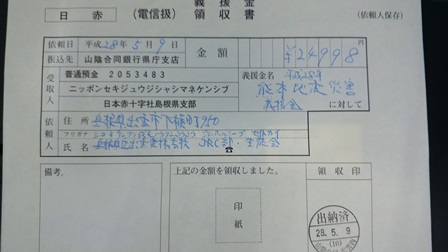 義援金
日 赤 (電信扱) 領収書 (依頼人保存)
依頼日 平成28年5月9日 金額 ¥24998円
振込先 山陰合同銀行県庁支店
受取人 普通預金 2053483
ニッポンセキジュウジシャシマネケンシブ
日本赤十字社島根県支部
義援金名 平成28年
熊本地震災害
義援金 に対して
依頼人 住所
フリガナ
氏名 JRC部・生徒会
☎
備考. 上記の金額を領収しました。 領収印
印紙
出納済
28.5.9